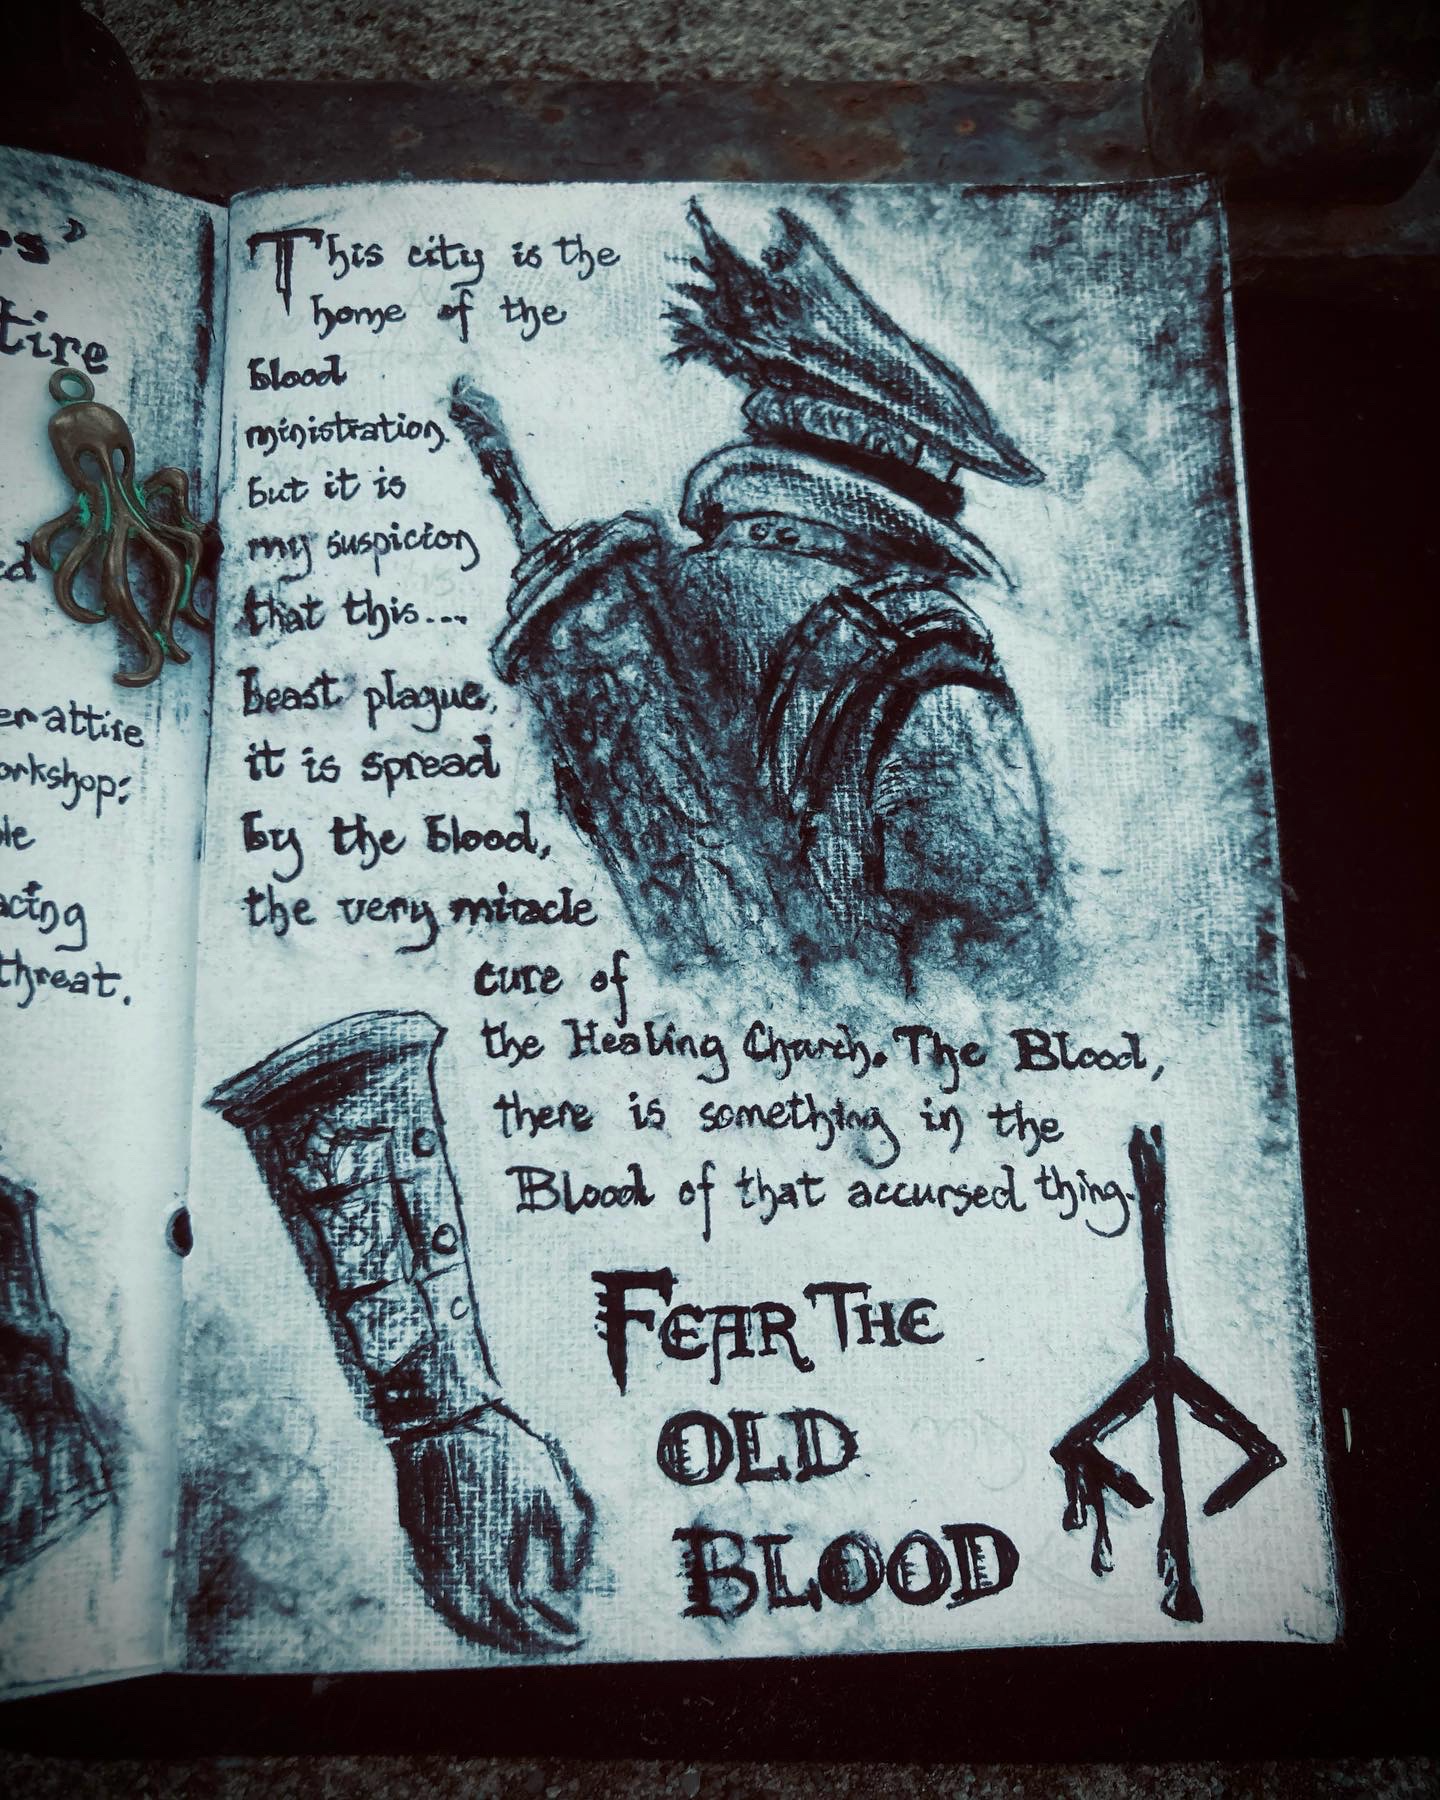 es'
tire
ed
er attire
orkshop:
le
acing
threat.
This city is the
home of the
blood
ministration.
but it is
my suspicion
that this...
beast plague,
it is spread
by the blood,
the very miracle
cure of
the Healing Church. The Blood,
there is something in the
Blood of that accursed thing.
FEAR THE
OLD
BLOOD